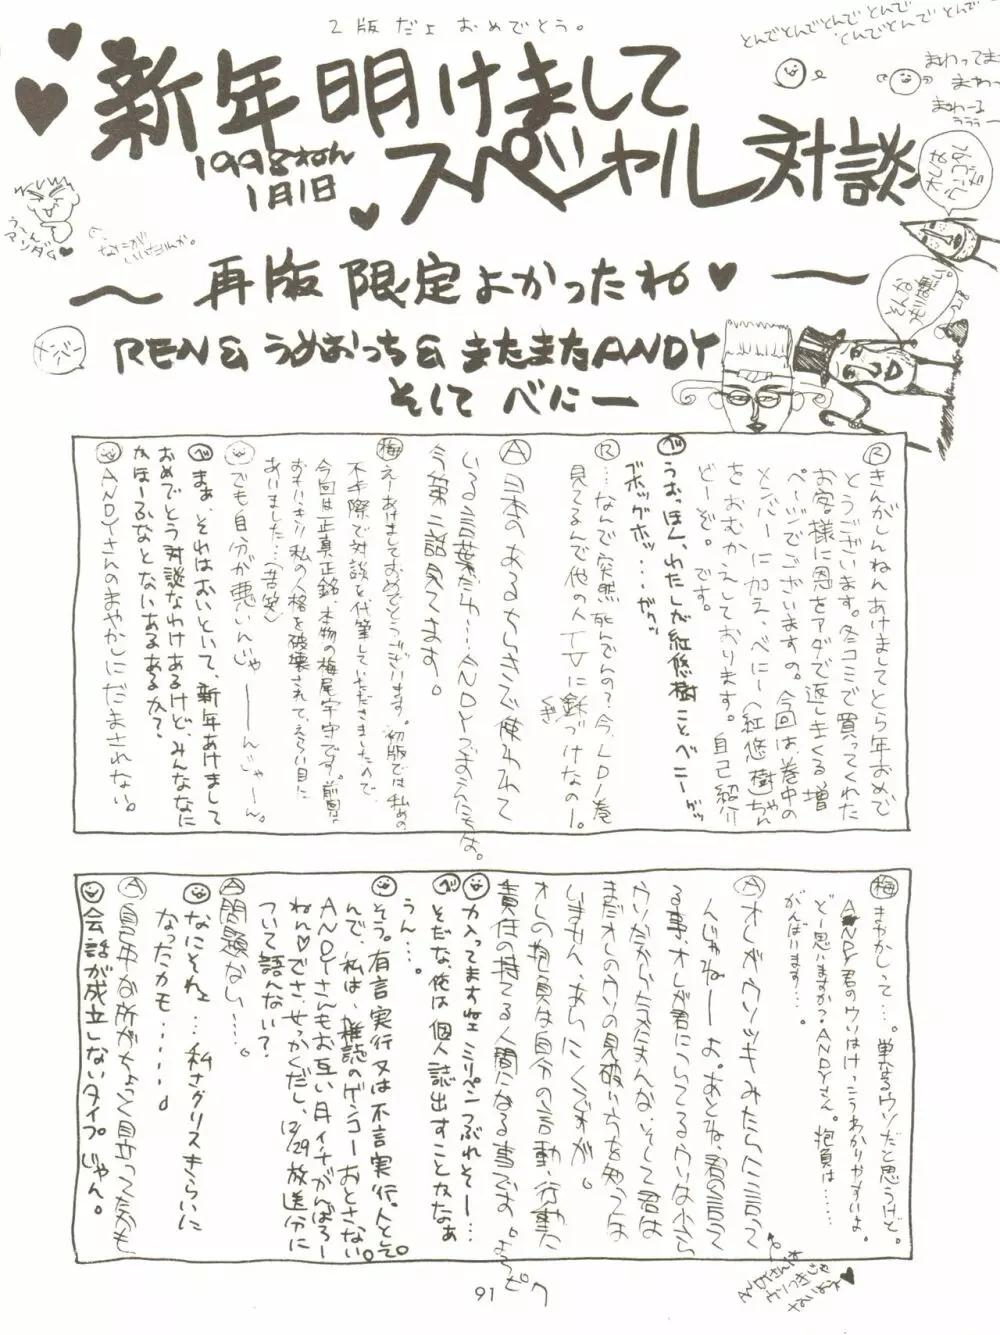 2版だよ おめでとう。
新年明けまして
1998ねん
1月1日
スペシャル対談
～再版限定よかったね♥～
メンバー
REN & うめおっち & またまたANDY
そして べにー
とんでとんでとんで とんで とんで
まわってまわって
まわーる
う～ん
マンダム♥
なにが
いいたいんだか。
Ⓡきんがしんねんあけましてとら年おめで
とうございます。冬コミで買ってくれた
お客様に恩をアダで返しまくる増
ページでございますの。今回は巻中の
メンバーに加え、べにー(紅悠樹)ちゃん
をおむかえしております。自己紹介
どーぞ。です。
べうおっほん、わたしが紅悠樹ことべニーゲッ
ボッグホッ…ガクッ
Ⓡ…なんで突然死んでんの?今、LD1巻
見てるんで他の人TVに釘づけなのー。
Ⓐ日本のあるちらきズで使われて
いる言葉だわ…ANDYずばえにもは。
今第二話見てます。
梅えーあけましておめでとうございます。初版では私めの
不手際で対談を代筆していただきましたので、
今回は正真正銘、本物の梅尾宇宇です。前回は
おもいきり私の人格を破壊されて、えらい目に
あいました…(苦笑)
でも自分が悪いんじゃーーんじゃーん。
べまあ、それはおいといて、新年あけまして
おめでとう対談なわけあるけど、みんななに
かほーふなとないあるあるか?
ANDYさんのまやかしにだまされない。
梅まやかしって……。単なるウソだと思うけど。
ANDY君のウソはけっこうわかりやすいよ。
どー思いますか?ANDYさん。抱負は……
がんばります…。
Ⓐオレがウソツキみたらに言って
んじゃねーーよ。あとね、君の言って
る事、オレが君につってるウソは少ら
ウソだからたえまんな、そして君は
まだオレのウソの見破り方を知っては
いません、あらにくですが。
オレの抱負は自分の言動、行動に
責任の持てる人間になる事です。
力入ってますねェミリペンつぶれそー…
べそだな、俺は個人誌出すことかなぁ
うん…。
そう。有言実行又は不言実行。とと
んで、私は、雑誌のゲンコーおとさない。
ANDYさんもお互い月イチがんばろー
ねん♡でさ、せっかくだし、12/29放送分に
ついて語んない?
Ⓐ問題ない…。
なにそれェ…私さグリスきらいに
なったかも……。
Ⓐ自年な所がちょっと目立ってたかも
会話が成立しないタイプじゃん。
91